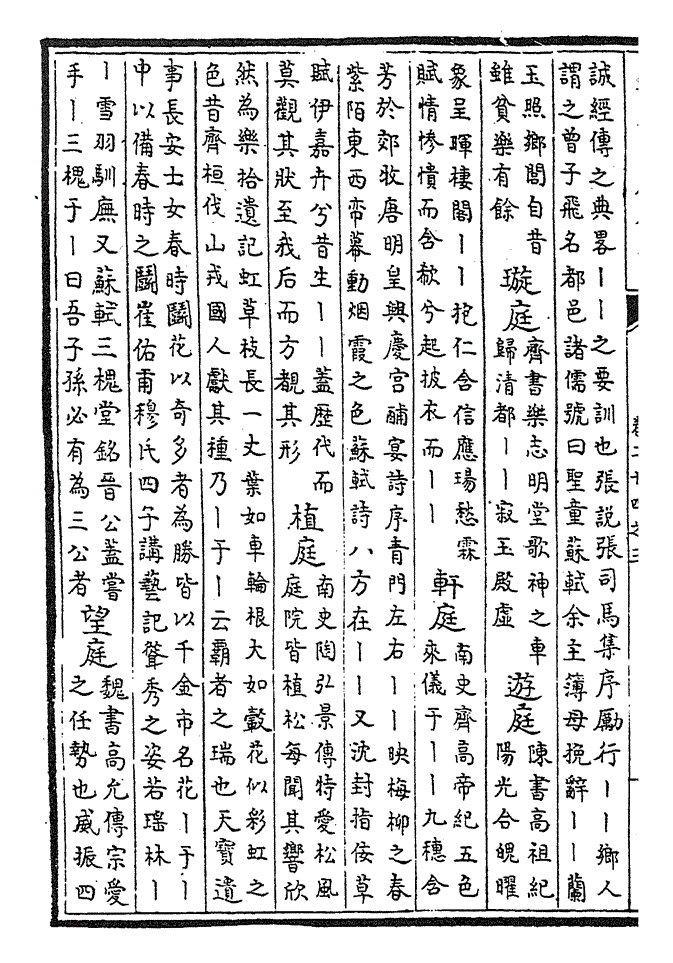 誠經傳之典畧丨丨之要訓也張說張司馬集序勵行丨丨鄉人
謂之曾子飛名都邑諸儒號曰聖童蘇軾余主簿母挽辭丨丨蘭
玉照鄉閭自昔
雖貧樂有餘
璇庭
齊書樂志明堂歌神之車
歸清都丨丨寂玉殿虛
遊庭
陳書高祖紀
陽光合魄曜
象呈暉棲閣丨丨抱仁含信應瑒愁霖
賦情慘憒而含欷兮起披衣而丨丨
軒庭
南史齊高帝紀五色
來儀于丨丨九穗含
芳於郊牧唐明皇興慶宮酺宴詩序青門左右丨丨映梅柳之春
紫陌東西帟幕動烟霞之色蘇軾詩八方在丨丨又沈封指佞草
賦伊嘉卉兮昔生丨丨蓋歷代而
莫觀其狀至我后而方覩其形
植庭
南史陶弘景傳特愛松風
庭院皆植松每聞其響欣
然為樂拾遺記虹草枝長一丈葉如車輪根大如轂花似彩虹之
色昔齊桓伐山戎國人獻其種乃丨于丨云霸者之瑞也天寶遺
事長安士女春時鬭花以奇多者為勝皆以千金市名花丨于丨
中以備春時之鬭崔佑甫穆氏四子講藝記聳秀之姿若瑶林丨
丨雪羽馴廡又蘇軾三槐堂銘晉公蓋嘗
手丨三槐于丨曰吾子孫必有為三公者
望庭
魏書高允傳宗愛
之任勢也威振四